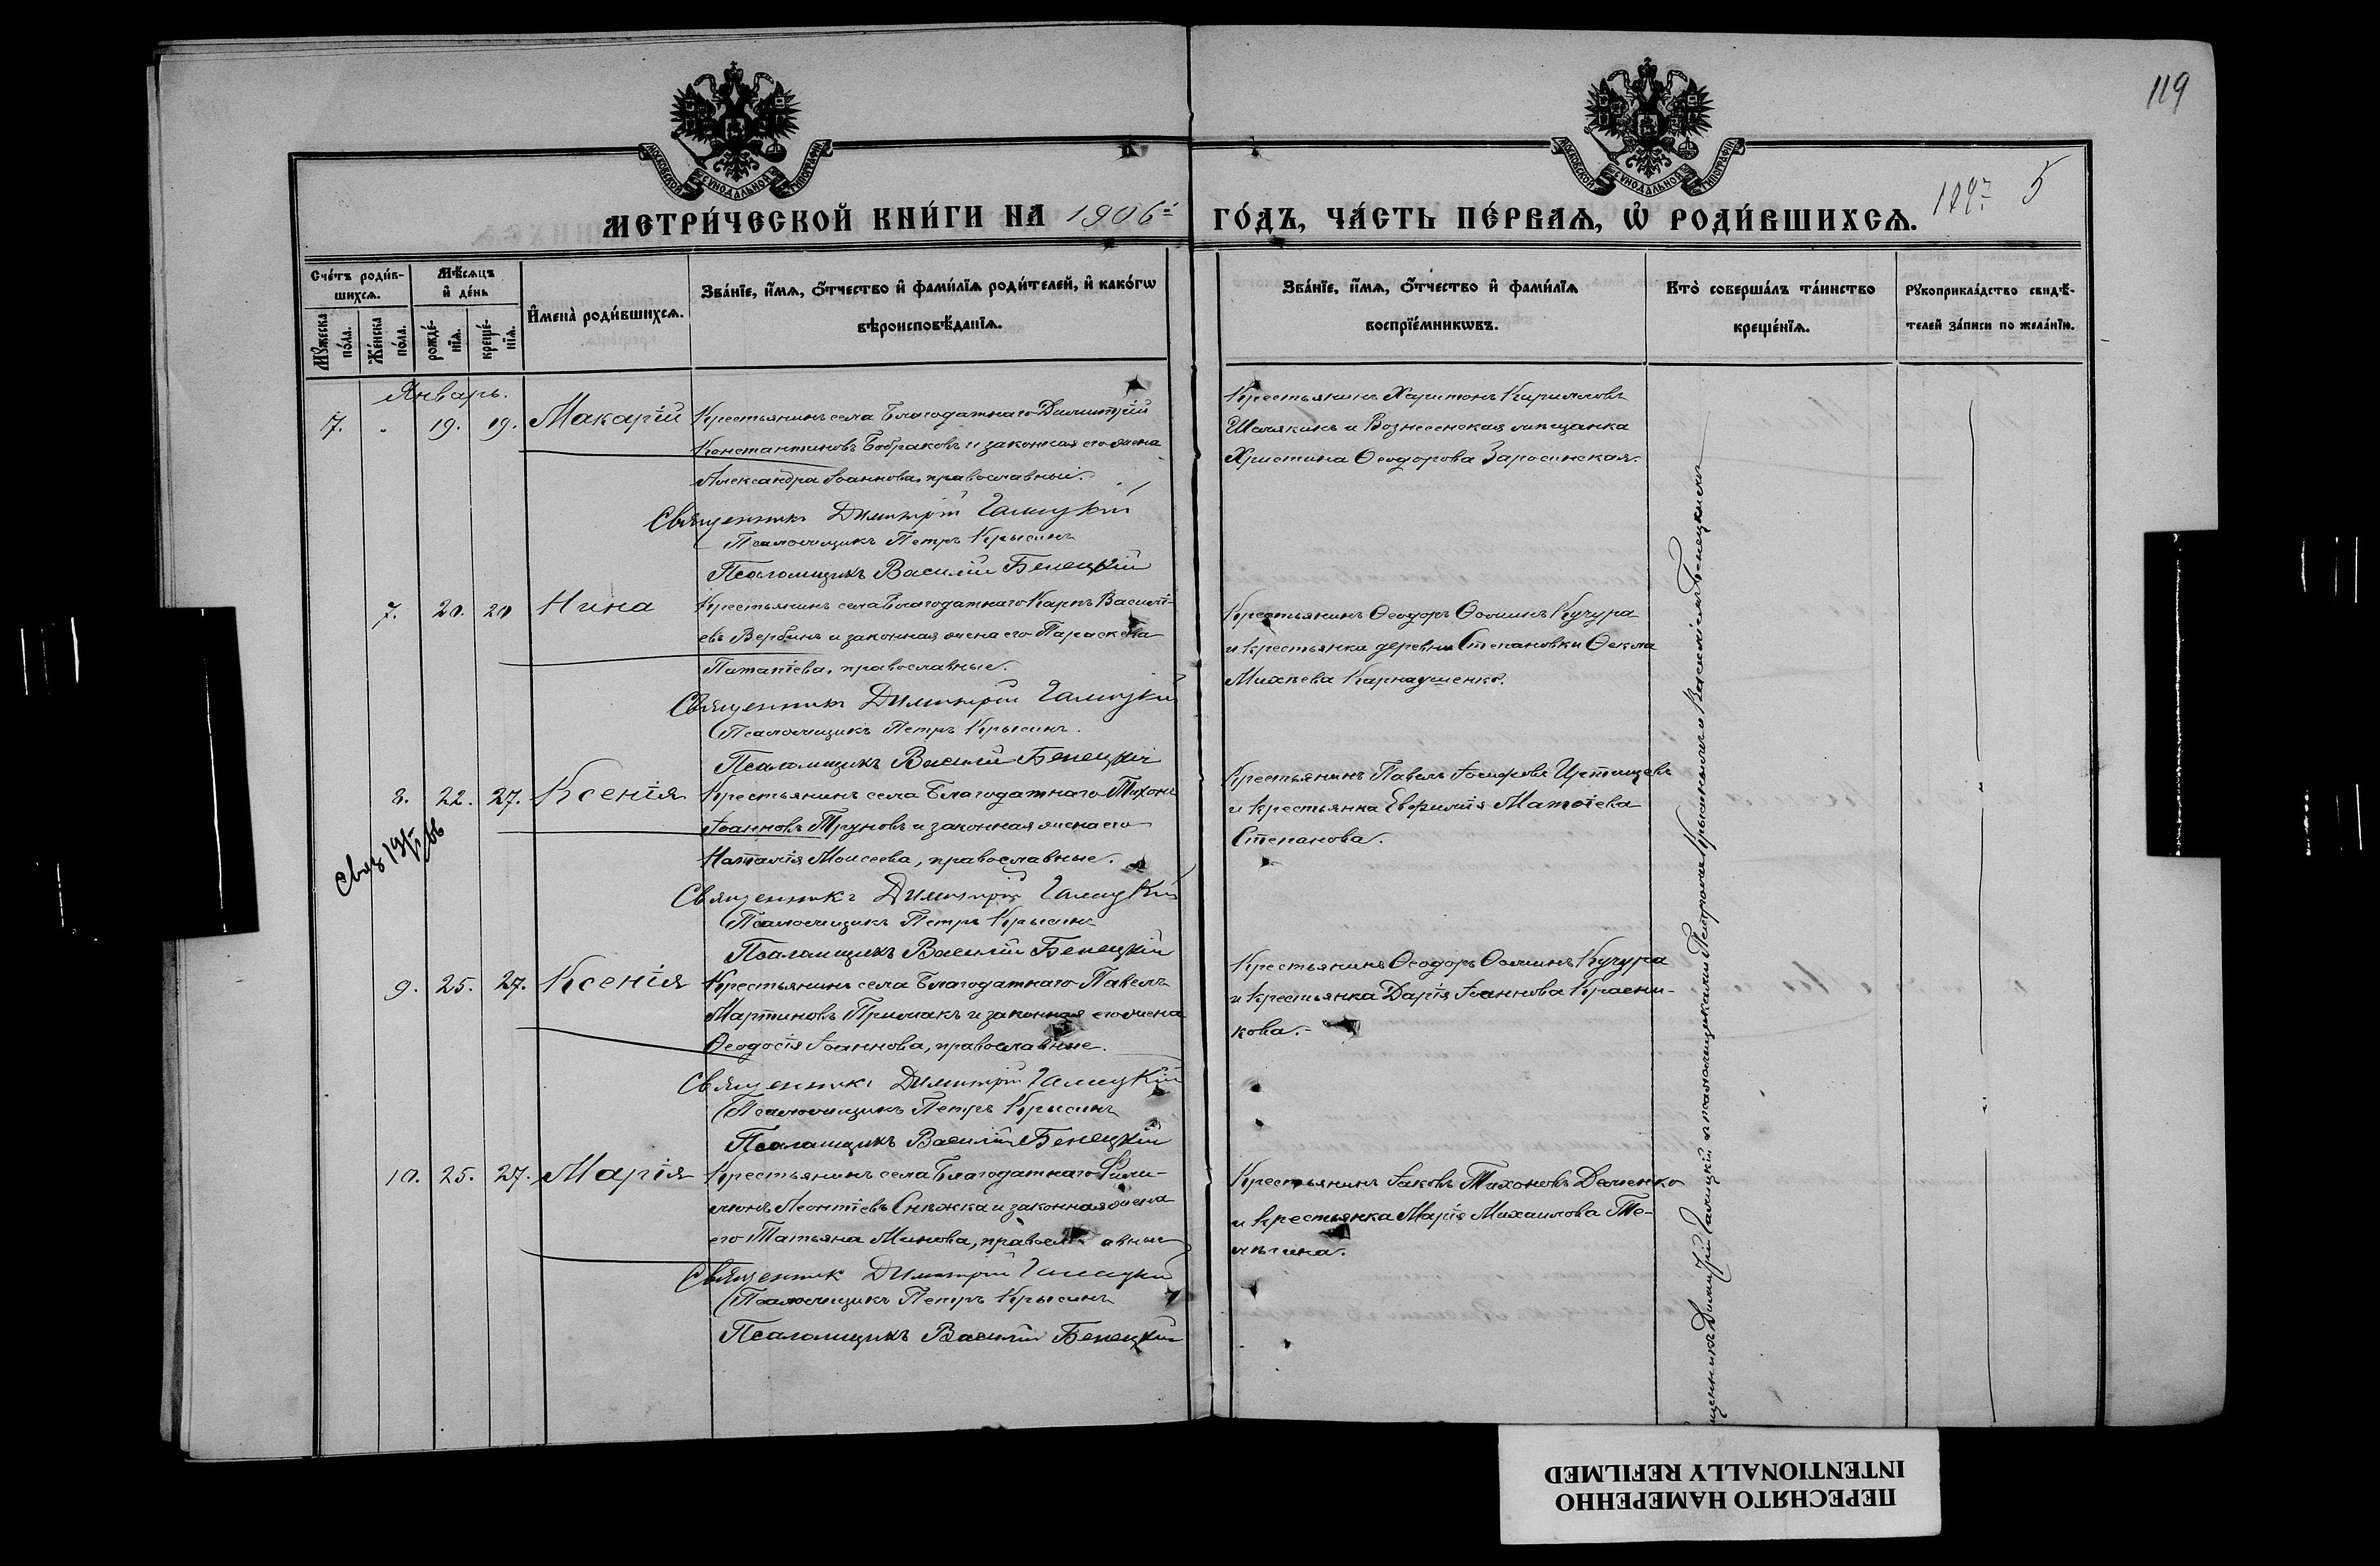 119
МОСКОВСКОЙ СѴНОДАЛЬНОЙ ТИПОГРАФІИ
МОСКОВСКОЙ СѴНОДАЛЬНОЙ ТИПОГРАФІИ
МЕТРИ́ЧЕСКОЙ КНИ́ГИ НА 1906й
ГО́ДЪ, ЧА́СТЬ ПЕ́РВАѦ, Ѿ РОДИ́ВШИХСѦ.
5
Сче́тъ роди́в-
шихсѧ.
Мꙋ́жеска по́ла.
Же́нска по́ла.
Мѣ́сѧцъ
и҆ де́нь
рожде́-
нїѧ.
креще́-
нїѧ.
И҆мена̀ роди́вшихсѧ.
Зва́нїе, и҆́мѧ, ѻ҆́тчество и҆ фами́лїѧ роди́телей, и҆ како́гѡ
вѣроисповѣ́данїѧ.
Зва́нїе, и҆́мѧ, ѻ҆́тчество и҆ фами́лїѧ
воспрїе́мникѡвъ.
Кто̀ соверша́лъ та́инство
креще́нїѧ.
Рꙋкоприкла́дство свидѣ́-
телей за́писи по жела́нїю.
Январь.
7. 19. 19. Макарій
Крестьянинъ села Благодатнаго Димитрій
Константиновъ Бобраковъ и законная его жена
Александра Іоаннова, православные.
Священникъ Димитрій Галицкій
Псаломщикъ Петръ Крысинъ
Псаломщикъ Василій Бенецкій
Крестьянинъ Харитонъ Кирилловъ
Шемякинъ и Вознесенская мѣщанка
Христина Ѳеодорова Заросинская.
7. 20. 20 Нина
Крестьянинъ села Благодатнаго Карпъ Василі-
евъ Вербинъ и законная жена его Параскева
Патапіева, православные.
Священникъ Димитрій Галицкій
Псаломщикъ Петръ Крысинъ.
Псаломщикъ Василій Бенецкій
Крестьянинъ Ѳеодоръ Ѳоминъ Кучура
и крестьянка деревни Степановки Ѳекла
Михѣева Карнаушенко.
8. 22. 27. Ксенія
Крестьянинъ села Благодатнаго Тихонъ
Іоанновъ Труновъ и законная жена его
Наталія Моисеева, православные.
Священникъ Димитрій Галицкій
Псаломщикъ Петръ Крысинъ
Псаломщикъ Василій Бенецкій
Крестьянинъ Павелъ Іосифовъ
и крестьянка Евфимія Матѳіева
Степанова.
9. 25. 27. Ксенія
Крестьянинъ села Благодатнаго Павелъ
Мартиновъ Примакъ и законная его жена
Ѳеодосія Іоаннова, православные.
Священникъ Димитрій Галицкій
Псаломщикъ Петръ Крысинъ
Псаломщикъ Василій Бенецкій
Крестьянинъ Ѳеодоръ Ѳоминъ Кучура
и крестьянка Дарія Іоаннова Красни-
кова.
10. 25. 27. Марія
Крестьянинъ села Благодатнаго Фили-
монъ Леонтіевъ Снѣжка и законная жена
его Татьяна Минова, православные
Священникъ Димитрій Галицкій
Псаломщикъ Петръ Крысинъ
Псаломщикъ Василій Бенецкій
Крестьянинъ Іаковъ Тихоновъ Деменко
и крестьянка Марія Михаилова Те-
лѣгина.
Димитрій Галицкій съ псаломщиками Петромъ Крысинымъ и Василіемъ Бенецкимъ
ПЕРЕСНЯТО НАМЕРЕННО
INTENTIONALLY REFILMED